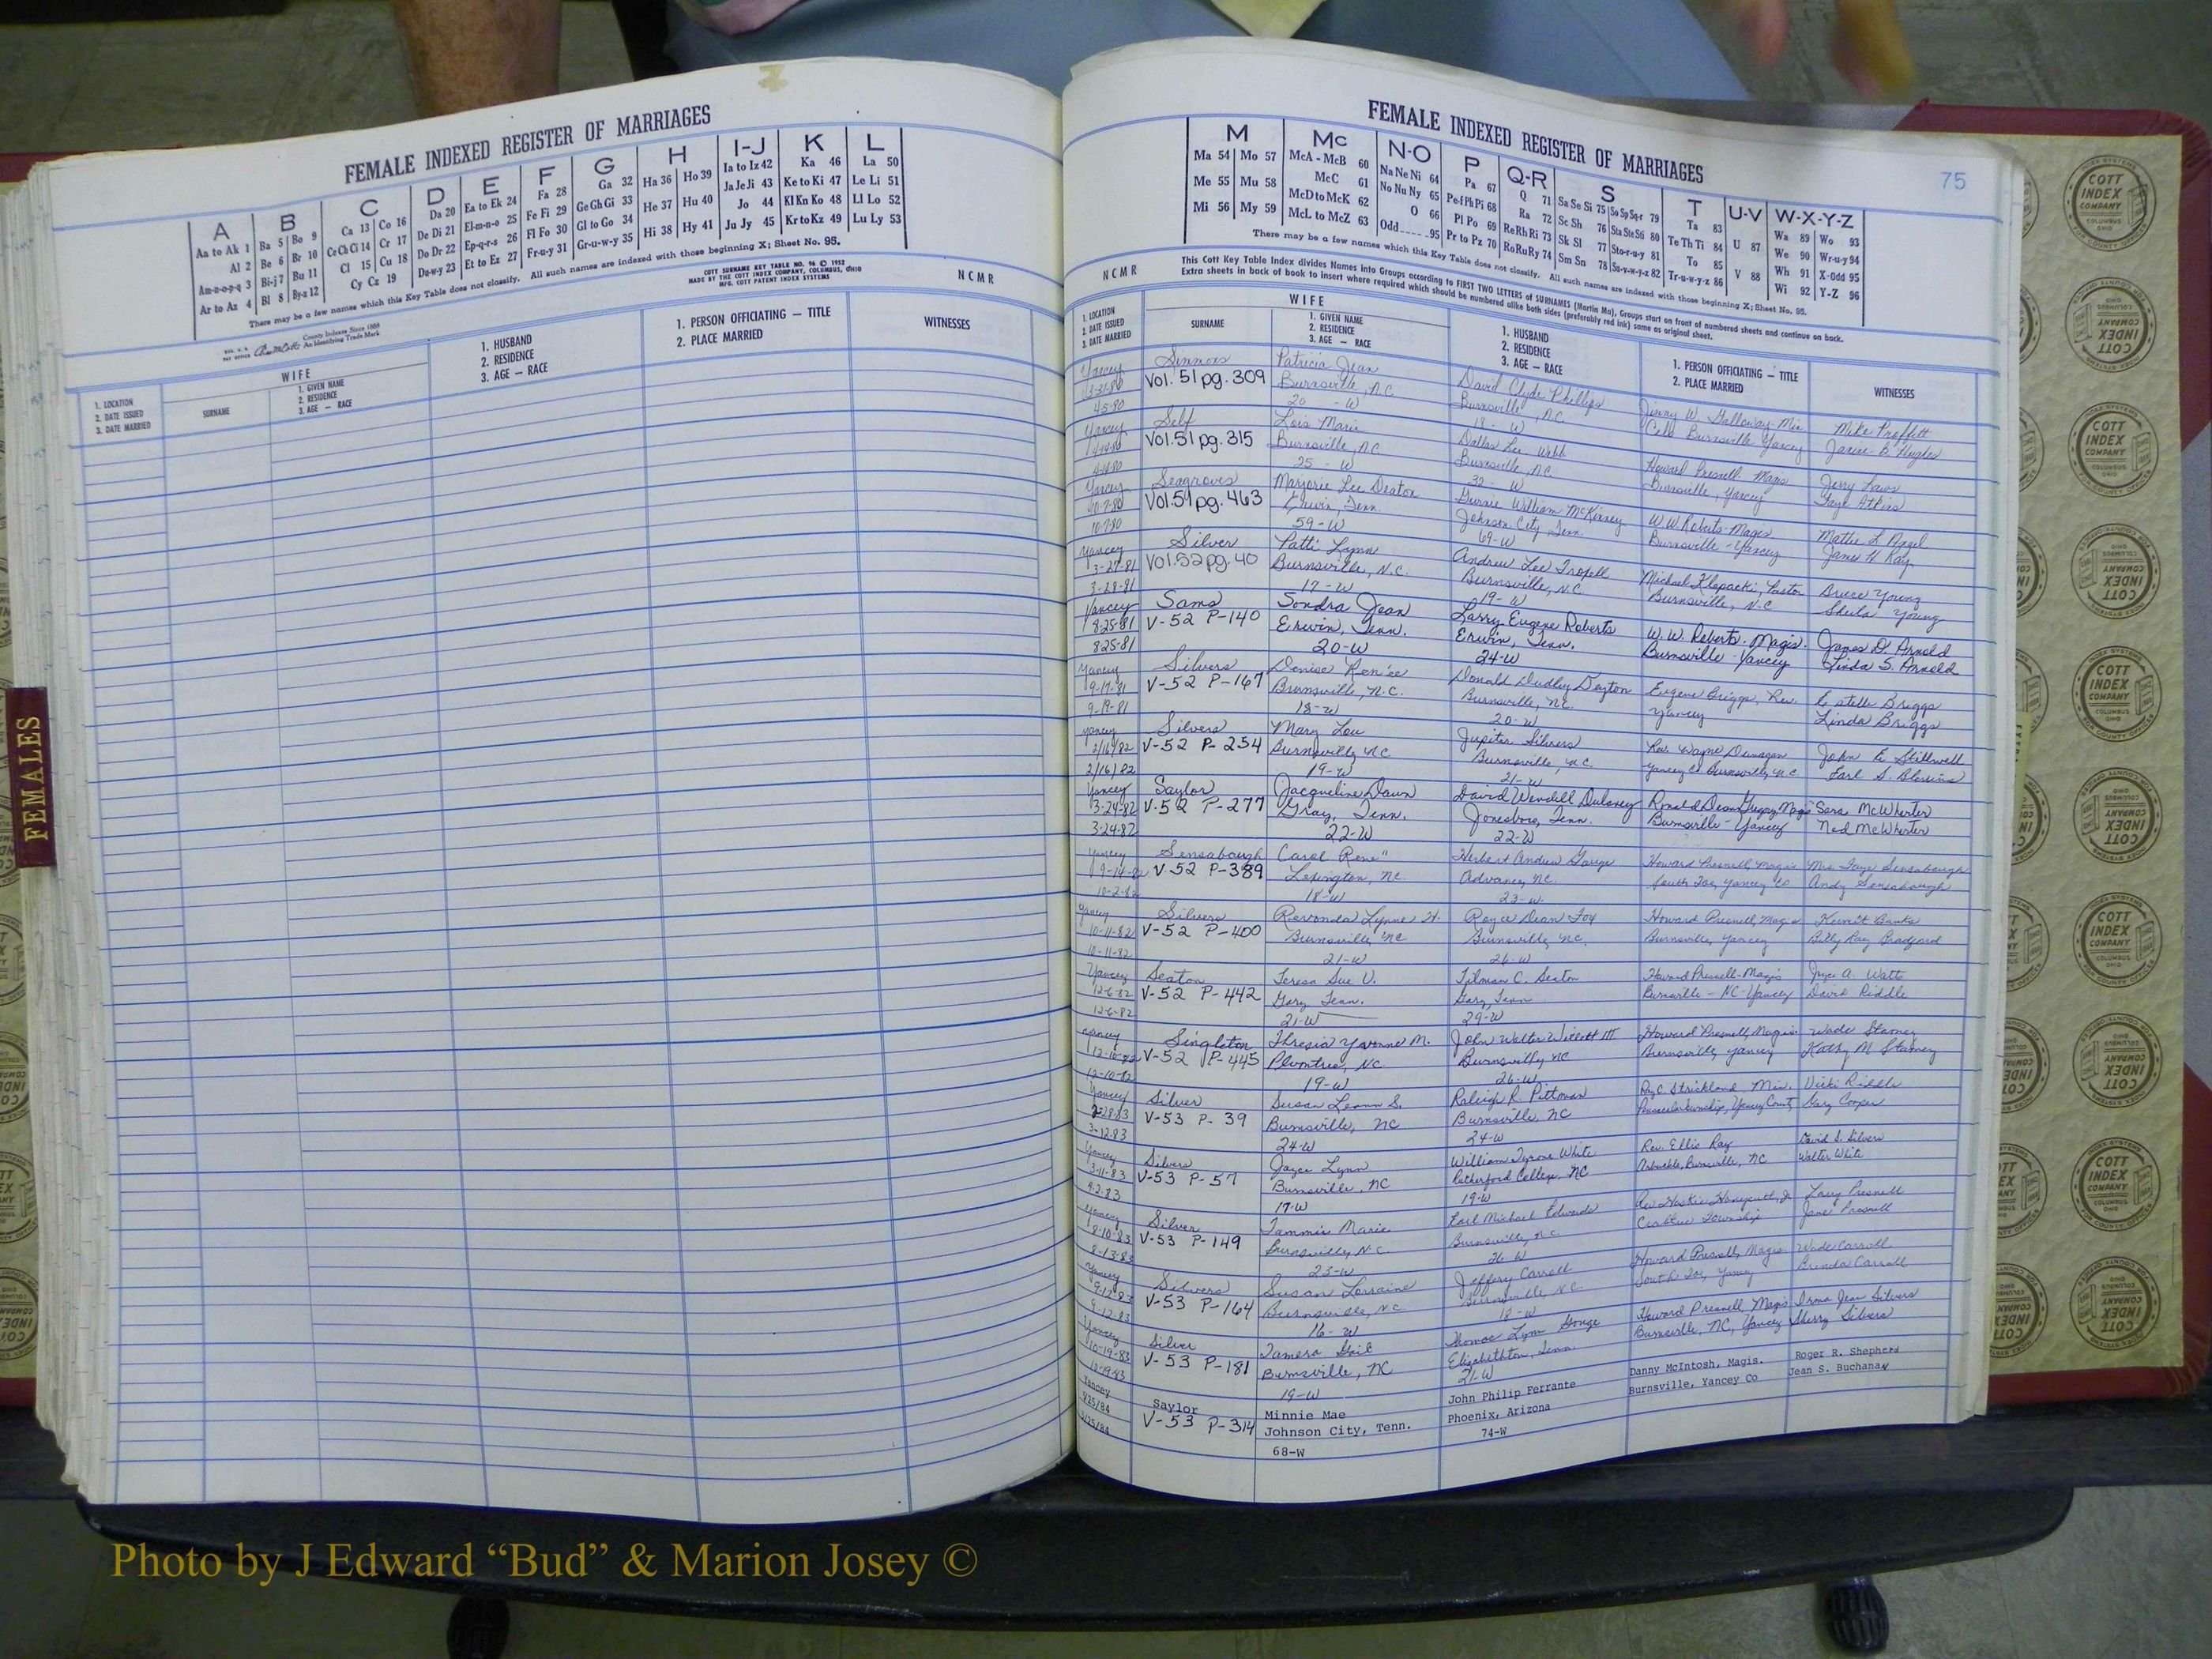 FEMALE INDEXED REGISTER OF MARRIAGES
A B C D E F G H I-J K L
Aa to Ak 1 Ba 5 Bo 9 Ca 13 Co 16 Da 20 Ea to Ek 24 Fa 28 Ga 32 Ha 36 Ho 39 Ia to Iz 42 Ka 46 La 50
Al 2 Be 6 Br 10 Ce Ch Ci 14 Cr 17 De Di 21 El-m-n-o 25 Fe Fi 29 Ge Gh Gi 33 He 37 Hu 40 Ja Je Ji 43 Ke to Ki 47 Le Li 51
Am-n-o-p-q 3 Bi-j 7 Bu 11 Cl 15 Cu 18 Do Dr 22 Ep-q-r-s 26 Fl Fo 30 Gl to Go 34 Hi 38 Hy 41 Jo 44 Kl Kn Ko 48 Ll Lo 52
Ar to Az 4 Bl 8 By-z 12 Cy Cz 19 Du-w-y 23 Et to Ez 27 Fr-u-y 31 Gr-u-w-y 35 Ju Jy 45 Kr to Kz 49 Lu Ly 53
There may be a few names which this Key Table does not classify. All such names are indexed with those beginning X; Sheet No. 95.
COTT SURNAME KEY TABLE NO. 96 © 1952
MADE BY THE COTT INDEX COMPANY, COLUMBUS, OHIO
MFG. COTT PATENT INDEX SYSTEMS
NCMR
County Indexes Since 1888
An Identifying Trade Mark
WIFE
1. LOCATION
2. DATE ISSUED
3. DATE MARRIED
SURNAME
1. GIVEN NAME
2. RESIDENCE
3. AGE — RACE
1. HUSBAND
2. RESIDENCE
3. AGE — RACE
1. PERSON OFFICIATING — TITLE
2. PLACE MARRIED
WITNESSES
FEMALES
FEMALE INDEXED REGISTER OF MARRIAGES
75
M Mc N-O P Q-R S T U-V W-X-Y-Z
Ma 54 Mo 57 McA - McB 60 Na Ne Ni 64 Pa 67 Q 71 Sa Se Si 75 So Sp Sq-r 79 Ta 83 U 87 Wa 89 Wo 93
Me 55 Mu 58 McC 61 No Nu Ny 65 Pe-f Ph Pi 68 Ra 72 Sc Sh 76 Sta Ste Sti 80 Te Th Ti 84 V 88 We 90 Wr-u-y 94
Mi 56 My 59 McD to McK 62 O 66 Pl Po 69 Re Rh Ri 73 Sk Sl 77 Sto-r-u-y 81 To 85 Wh 91 X-Odd 95
McL to McZ 63 Odd 95 Pr to Pz 70 Ro Ru Ry 74 Sm Sn 78 Su-v-w-y-z 82 Tr-u-w-y-z 86 Wi 92 Y-Z 96
There may be a few names which this Key Table does not classify. All such names are indexed with those beginning X; Sheet No. 95.
NCMR
This Cott Key Table Index divides Names into Groups according to FIRST TWO LETTERS of SURNAMES (Martin Ma), Groups start on front of numbered sheets and continue on back.
Extra sheets in back of book to insert where required which should be numbered alike both sides (preferably red ink) same as original sheet.
WIFE
1. LOCATION
2. DATE ISSUED
3. DATE MARRIED
SURNAME
1. GIVEN NAME
2. RESIDENCE
3. AGE — RACE
1. HUSBAND
2. RESIDENCE
3. AGE — RACE
1. PERSON OFFICIATING — TITLE
2. PLACE MARRIED
WITNESSES
Yancey Patricia Jean David Clyde Phillips Jimmy W. Galloway Min Mike Proffitt
3-31-80 Vol. 51 pg. 309 Burnsville, N.C. Burnsville, N.C. Celo Burnsville Yancey Janice B. Hughes
4-5-80 20 - W 18 - W
Yancey Self Lois Marie Dallas Lee Webb Howard Presnell Magis Jerry Laws
4-14-80 Vol. 51 pg. 315 Burnsville, N.C. Burnsville, N.C. Burnsville, Yancey Faye Atkins
4-14-80 25 - W 32 - W
Yancey Seagroves Marjorie Lee Deaton William McKinney W.W. Roberts - Magis
10-7-80 Vol. 59 pg. 463 Erwin, Tenn. Johnson City, Tenn. Burnsville - Yancey James H. Ray
10-7-80 59-W 69-W
Yancey Silver Patti Lynn Andrew Lee Michael Klepacki, Pastor Bruce Young
3-27-81 Vol. 52 pg. 40 Burnsville, N.C. Burnsville, N.C. Burnsville, N.C. Sheila Young
3-28-81 17-W 19-W
Yancey Sams Sondra Jean Larry Eugene Roberts W.W. Roberts - Magis. James D. Arnold
8-25-81 V-52 P-140 Erwin, Tenn. Erwin, Tenn. Burnsville Yancey Linda S. Arnold
8-25-81 20-W 24-W
Yancey Silvers Denise Ren'ee Donald Dudley Deyton Eugene Briggs, Rev. Estelle Briggs
9-17-81 V-52 P-167 Burnsville, N.C. Burnsville, N.C. Yancey Linda Briggs
9-19-81 18-W 20-W
Yancey Silvers Mary Lou Jupiter Silvers Rev. Wayne Dunagan John E. Stillwell
2/16/82 V-52 P-254 Burnsville, NC Burnsville, N.C. Yancey Co. Burnsville, N.C. Earl S. Blevins
2/16/82 19-W 21-W
Yancey Saylor Jacqueline Dawn David Wendell Dulaney Ronald Dean Magis Sara McWherter
3-24-82 V-52 P-277 Gray, Tenn. Jonesboro, Tenn. Burnsville - Yancey Ned McWherter
3-24-82 22-W 22-W
Yancey Sensabaugh Carol Rene" Herbert Andrew George Howard Presnell, Magis Mrs. Faye Sensabaugh
9-14-82 V-52 P-389 Lexington, NC. Advance, NC. South Toe, Yancey Co Andy Sensabaugh
10-2-82 18-W 23-W
Yancey Silvers Revonda Lynne H. Royce Dean Fox Howard Presnell, Magis Kermit Banks
10-11-82 V-52 P-400 Burnsville, NC Burnsville, NC. Burnsville, Yancey Billy Ray Bradford
10-11-82 21-W 26-W
Yancey Seaton Teresa Sue V. Tilman C. Seaton Howard Presnell - Magis Joyce A. Watts
12-6-82 V-52 P-442 Gary, Tenn. Gary, Tenn Burnsville - NC - Yancey David Riddle
12-6-82 21-W 29-W
Yancey Singleton Thresia Yvonne M. John Walter Willett III Howard Presnell, Magis Wade Stamey
12-10-82 V-52 P-445 Plumtree, NC Burnsville, NC Burnsville, Yancey Kathy M Stamey
12-10-82 19-W 26-W
Yancey Silver Susan Leann S. Raleigh R. Pittman Ray C Strickland Min. Vicki Riddle
2-28-83 V-53 P-39 Burnsville, NC Burnsville, NC Township, Yancey County Gary Cooper
3-12-83 24-W 24-W
Yancey Silvers Joyce Lynn William Tyrone White Rev. Ellis Ray David S. Silvers
3-11-83 V-53 P-57 Burnsville, NC Rutherford College, NC Burnsville, NC Walter White
4-2-83 17-W 19-W
Yancey Silver Tammie Marie Earl Michael Edwards Larry Presnell
8-10-83 V-53 P-149 Burnsville, N.C. Burnsville, N.C. Township Jane Presnell
8-13-83 23-W 26-W
Yancey Silvers Susan Lorraine Jeffery Carroll Howard Presnell, Magis Wade Carroll
9-12-83 V-53 P-164 Burnsville, N.C. Burnsville, N.C. South Toe, Yancey Brenda Carroll
9-12-83 16-W 18-W
Yancey Silver Tamera Gail Thomas Lynn Gouge Howard Presnell, Magis Irma Jean Silvers
10-19-83 V-53 P-181 Burnsville, NC Elizabethton, Tenn. Burnsville, NC, Yancey Sherry Silvers
10-19-83 19-W 21-W
Yancey Saylor Minnie Mae John Philip Ferrante Danny McIntosh, Magis. Roger R. Shepherd
V-53 P-314 Johnson City, Tenn. Phoenix, Arizona Burnsville, Yancey Co Jean S. Buchanan
68-W 74-W
COTT INDEX COMPANY
COLUMBUS OHIO
Photo by J Edward “Bud” & Marion Josey ©